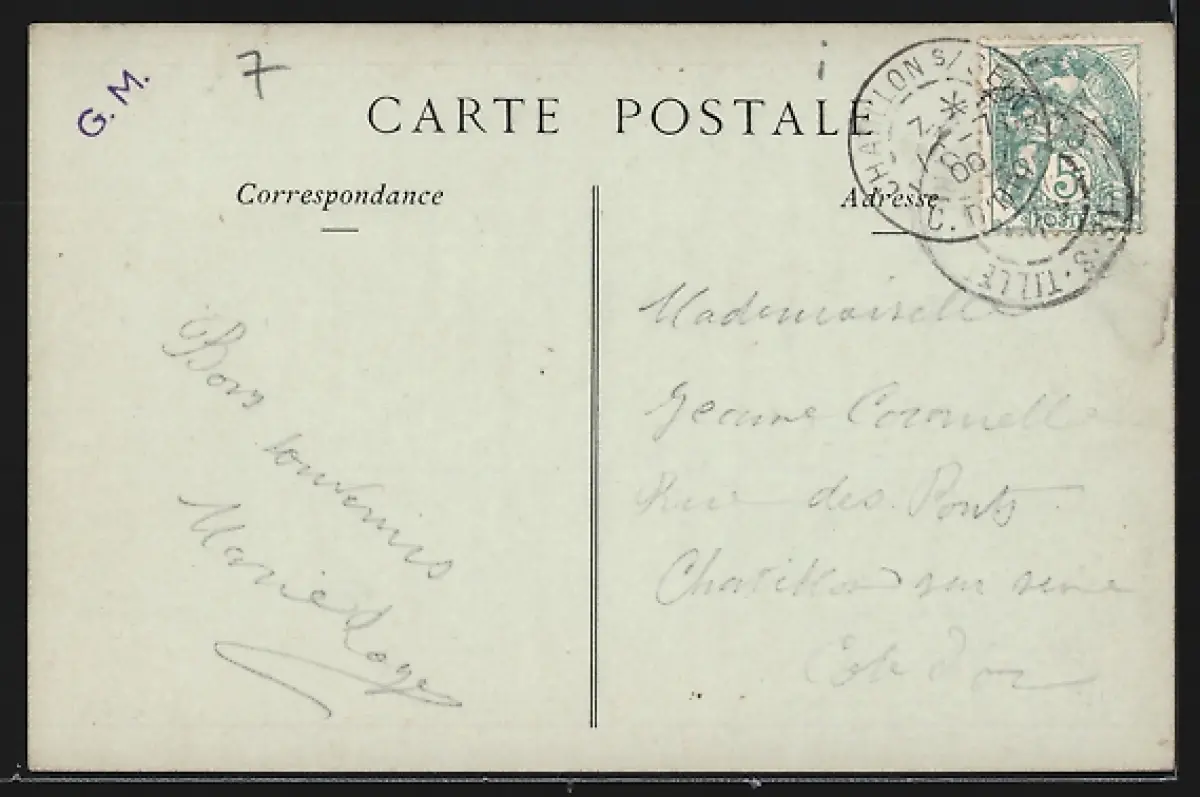 G. M.
7
CARTE POSTALE
Correspondance
Adresse
CHATILLON S/ SEINE
5
POSTES
S. TILLE
Bons
souvenirs
Marie Loyer
Mademoiselle
Jeanne Coromelle
Rue des Ponts
Chatillon sur seine
Cote d'or